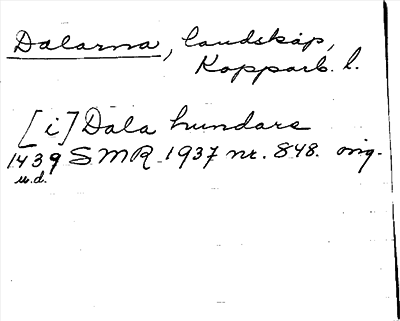 Dalarna, landskap,
Kopparb. l.
[i] Dala hundare
1439 SMR 1937 nr. 848. orig.
u.d.